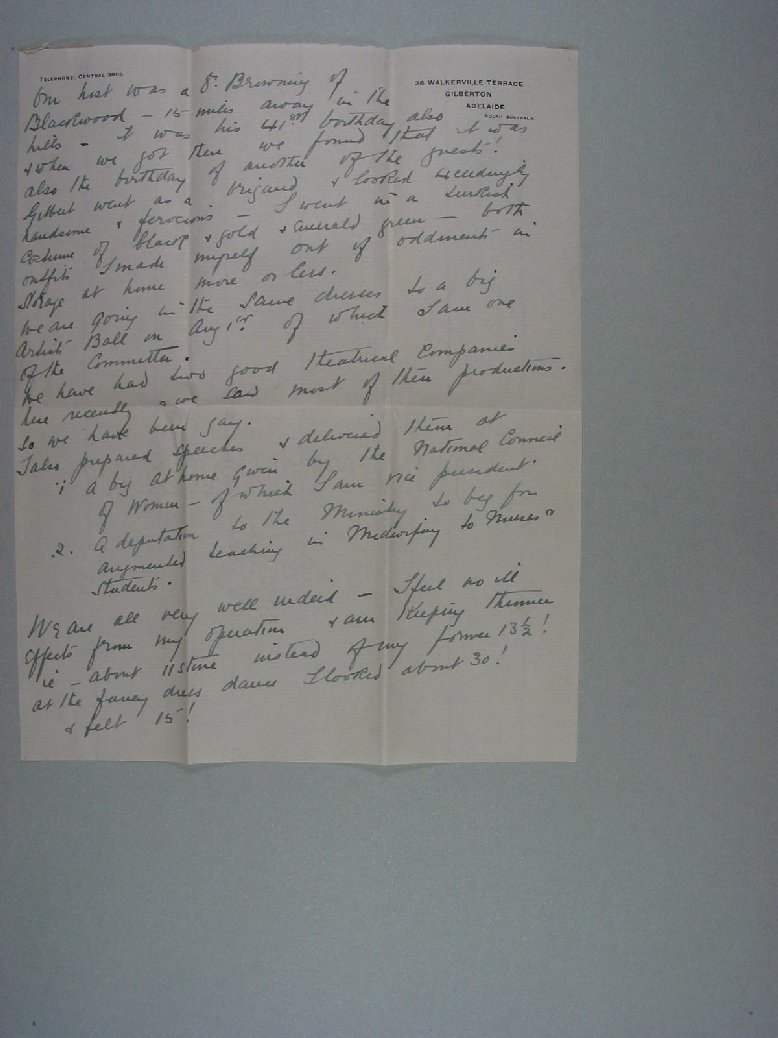 TELEPHONE, CENTRAL 3000
36 WALKERVILLE TERRACE
GILBERTON
ADELAIDE
SOUTH AUSTRALIA
Our host was a Dr. Browning of
Blackwood – 15 miles away in the
hills – it was his 41st birthday also
& when we got there we found that it was
also the birthday of another of the guests!
Gilbert went as a brigand & looked exceedingly
handsome & ferocious – I went in a Turkish
Costume of black & gold & emerald green – both
outfits I made myself out of oddments in
storage at home more or less.
We are going in the same dresses to a big
Artists Ball on Aug 1st. of which I am one
of the Committee.
We have had two good theatrical Companies
here recently & we saw most of their productions.
So we have been gay.
I also prepared speeches & delivered them at
1 a big At home given by the National Council
of Women – of which I am vice president.
2. A deputation to the Ministry to beg for
augmented teaching in Midwifery to Nurses &
Students.
We are all very well indeed – I feel no ill
effects from my operation & am keeping thinner
ie – about 11 stone instead of my former 13½!
at the fancy dress dance I looked about 30!
& felt 15!